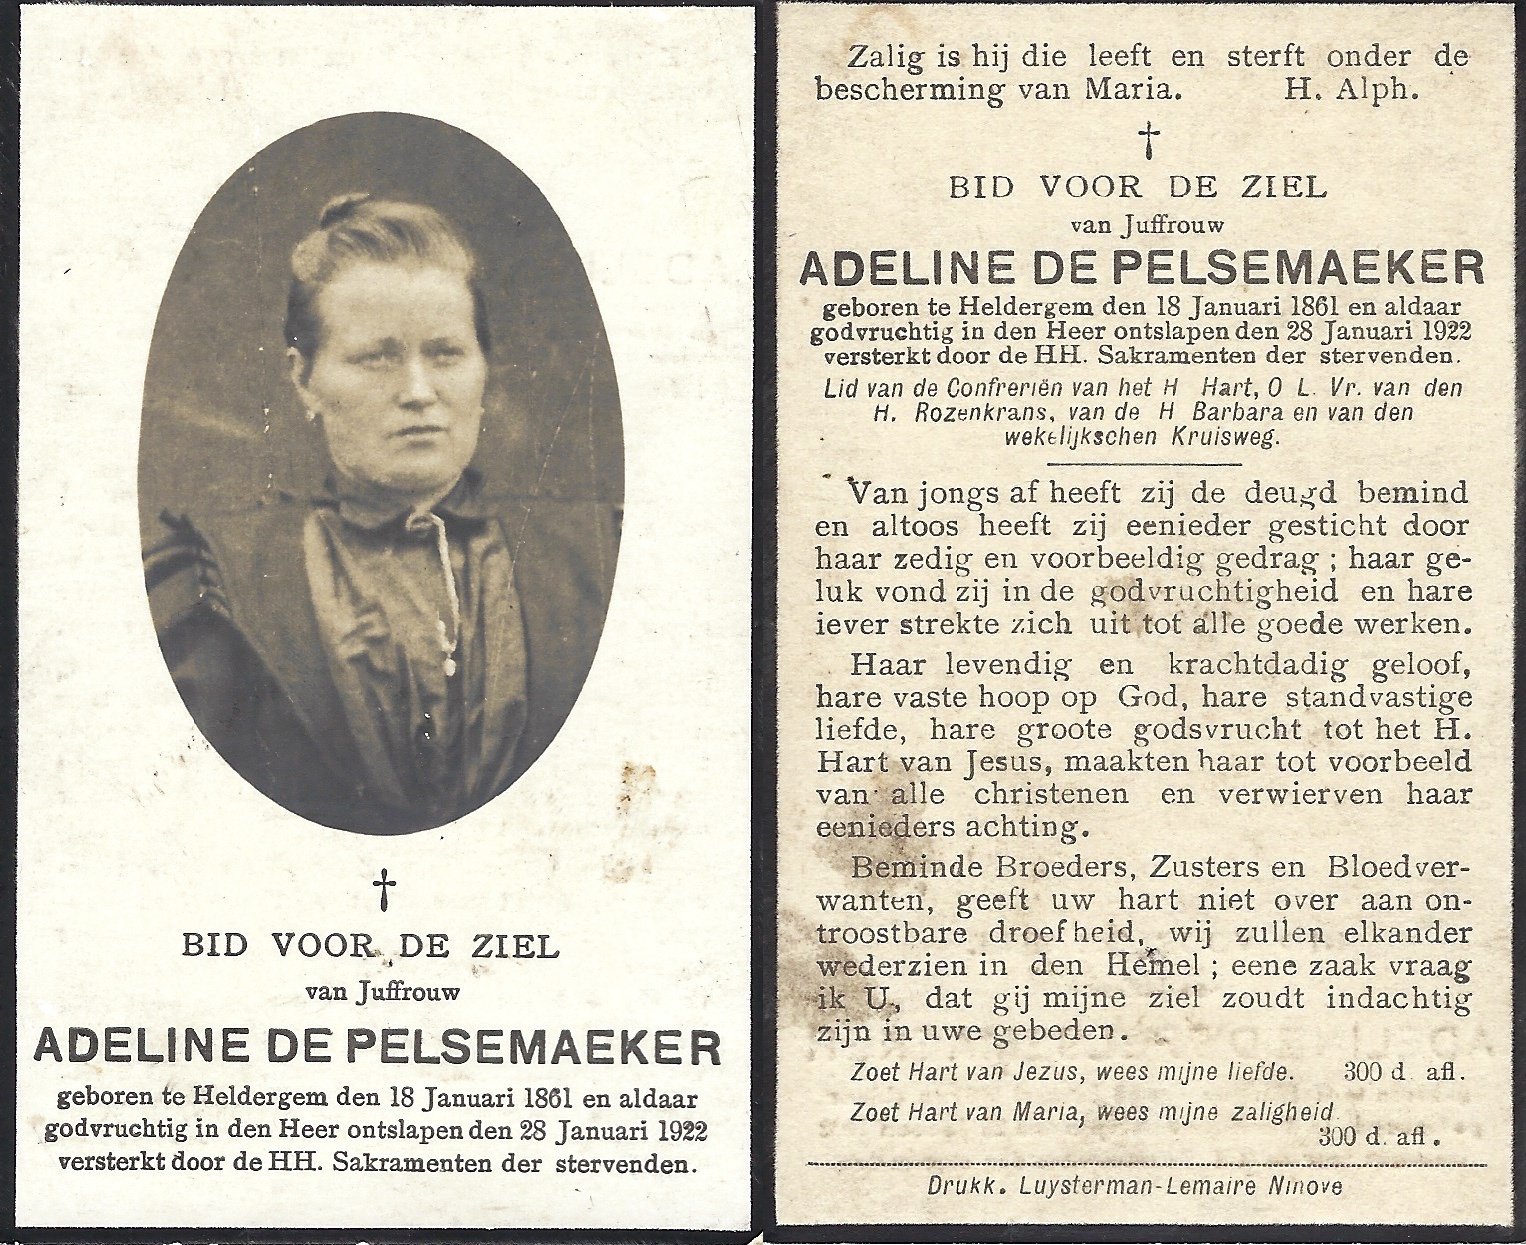 †
BID VOOR DE ZIEL
van Juffrouw
ADELINE DE PELSEMAEKER
geboren te Heldergem den 18 Januari 1861 en aldaar
godvruchtig in den Heer ontslapen den 28 Januari 1922
versterkt door de HH. Sakramenten der stervenden.
Zalig is hij die leeft en sterft onder de
bescherming van Maria. H. Alph.
†
BID VOOR DE ZIEL
van Juffrouw
ADELINE DE PELSEMAEKER
geboren te Heldergem den 18 Januari 1861 en aldaar
godvruchtig in den Heer ontslapen den 28 Januari 1922
versterkt door de HH. Sakramenten der stervenden.
Lid van de Confreriën van het H Hart, O L. Vr. van den
H. Rozenkrans, van de H Barbara en van den
wekelijkschen Kruisweg.
Van jongs af heeft zij de deugd bemind
en altoos heeft zij eenieder gesticht door
haar zedig en voorbeeldig gedrag ; haar ge-
luk vond zij in de godvruchtigheid en hare
iever strekte zich uit tot alle goede werken.
Haar levendig en krachtdadig geloof,
hare vaste hoop op God, hare standvastige
liefde, hare groote godsvrucht tot het H.
Hart van Jesus, maakten haar tot voorbeeld
van alle christenen en verwierven haar
eenieders achting.
Beminde Broeders, Zusters en Bloedver-
wanten, geeft uw hart niet over aan on-
troostbare droefheid, wij zullen elkander
wederzien in den Hemel ; eene zaak vraag
ik U, dat gij mijne ziel zoudt indachtig
zijn in uwe gebeden.
Zoet Hart van Jezus, wees mijne liefde. 300 d. afl.
Zoet Hart van Maria, wees mijne zaligheid.
300 d. afl.
Drukk. Luysterman-Lemaire Ninove